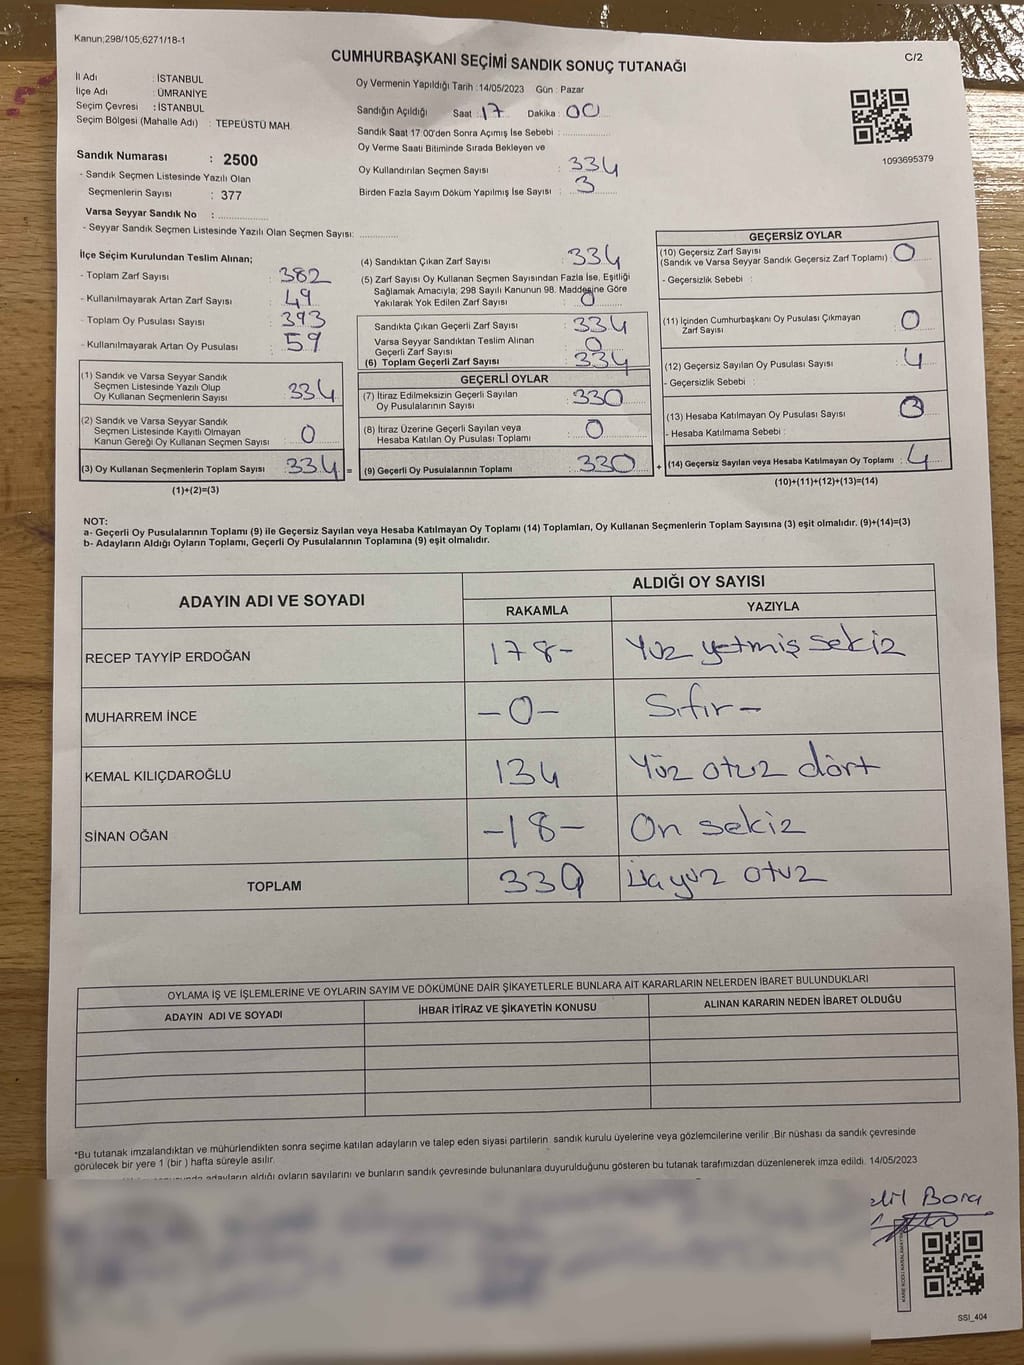 Kanun;298/105;6271/18-1
CUMHURBAŞKANI SEÇİMİ SANDIK SONUÇ TUTANAĞI
C/2
İl Adı : İSTANBUL
İlçe Adı : ÜMRANİYE
Seçim Çevresi : İSTANBUL
Seçim Bölgesi (Mahalle Adı) : TEPEÜSTÜ MAH.
Oy Vermenin Yapıldığı Tarih :14/05/2023 Gün : Pazar
Sandığın Açıldığı Saat : 17 Dakika : 00
Sandık Saat 17.00'den Sonra Açımış İse Sebebi : ..............
Oy Verme Saati Bitiminde Sırada Bekleyen ve
Oy Kullandırılan Seçmen Sayısı : 334
Birden Fazla Sayım Döküm Yapılmış İse Sayısı : 3
1093695379
Sandık Numarası : 2500
- Sandık Seçmen Listesinde Yazılı Olan
Seçmenlerin Sayısı : 377
Varsa Seyyar Sandık No : ..............
- Seyyar Sandık Seçmen Listesinde Yazılı Olan Seçmen Sayısı: ............
İlçe Seçim Kurulundan Teslim Alınan;
- Toplam Zarf Sayısı : 382
- Kullanılmayarak Artan Zarf Sayısı : 49
- Toplam Oy Pusulası Sayısı : 393
- Kullanılmayarak Artan Oy Pusulası : 59
(1) Sandık ve Varsa Seyyar Sandık
Seçmen Listesinde Yazılı Olup
Oy Kullanan Seçmenlerin Sayısı : 334
(2) Sandık ve Varsa Seyyar Sandık
Seçmen Listesinde Kayıtlı Olmayan
Kanun Gereği Oy Kullanan Seçmen Sayısı : 0
(3) Oy Kullanan Seçmenlerin Toplam Sayısı : 334 =
(1)+(2)=(3)
(4) Sandıktan Çıkan Zarf Sayısı : 334
(5) Zarf Sayısı Oy Kullanan Seçmen Sayısından Fazla İse, Eşitliği
Sağlamak Amacıyla; 298 Sayılı Kanunun 98. Maddesine Göre
Yakılarak Yok Edilen Zarf Sayısı : 0
Sandıkta Çıkan Geçerli Zarf Sayısı : 334
Varsa Seyyar Sandıktan Teslim Alınan
Geçerli Zarf Sayısı : 0
(6) Toplam Geçerli Zarf Sayısı : 334
GEÇERLİ OYLAR
(7) İtiraz Edilmeksizin Geçerli Sayılan
Oy Pusulalarının Sayısı : 330
(8) İtiraz Üzerine Geçerli Sayılan veya
Hesaba Katılan Oy Pusulası Toplamı : 0
(9) Geçerli Oy Pusulalarının Toplamı : 330 +
GEÇERSİZ OYLAR
(10) Geçersiz Zarf Sayısı
(Sandık ve Varsa Seyyar Sandık Geçersiz Zarf Toplamı) : 0
- Geçersizlik Sebebi :
(11) İçinden Cumhurbaşkanı Oy Pusulası Çıkmayan
Zarf Sayısı : 0
(12) Geçersiz Sayılan Oy Pusulası Sayısı : 4
- Geçersizlik Sebebi :
(13) Hesaba Katılmayan Oy Pusulası Sayısı :
- Hesaba Katılmama Sebebi :
(14) Geçersiz Sayılan veya Hesaba Katılmayan Oy Toplamı : 4
(10)+(11)+(12)+(13)=(14)
NOT:
a- Geçerli Oy Pusulalarının Toplamı (9) ile Geçersiz Sayılan veya Hesaba Katılmayan Oy Toplamı (14) Toplamları, Oy Kullanan Seçmenlerin Toplam Sayısına (3) eşit olmalıdır. (9)+(14)=(3)
b- Adayların Aldığı Oyların Toplamı, Geçerli Oy Pusulalarının Toplamına (9) eşit olmalıdır.
ADAYIN ADI VE SOYADI
ALDIĞI OY SAYISI
RAKAMLA YAZIYLA
RECEP TAYYİP ERDOĞAN 178- Yüz yetmiş sekiz
MUHARREM İNCE -0- Sıfır-
KEMAL KILIÇDAROĞLU 134 Yüz otuz dört
SİNAN OĞAN -18- On sekiz
TOPLAM 330 üçyüz otuz
OYLAMA İŞ VE İŞLEMLERİNE VE OYLARIN SAYIM VE DÖKÜMÜNE DAİR ŞİKAYETLERLE BUNLARA AİT KARARLARIN NELERDEN İBARET BULUNDUKLARI
ADAYIN ADI VE SOYADI İHBAR İTİRAZ VE ŞİKAYETİN KONUSU ALINAN KARARIN NEDEN İBARET OLDUĞU
*Bu tutanak imzalandıktan ve mühürlendikten sonra seçime katılan adayların ve talep eden siyasi partilerin sandık kurulu üyelerine veya gözlemcilerine verilir .Bir nüshası da sandık çevresinde
görülecek bir yere 1 (bir ) hafta süreyle asılır.
adayların aldığı oyların sayılarını ve bunların sandık çevresinde bulunanlara duyurulduğunu gösteren bu tutanak tarafımızdan düzenlenerek imza edildi. 14/05/2023
Bora
SSI_404